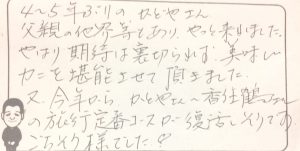 4~5年ぶりの かどやさん
父親の他界等もあり、やっと来れました。
やはり期待は裏切られず、美味しい
カニを堪能させて頂きました。
又、今年から かどやさん～香住鶴さん
の旅行定番コースが復活しそうです
ごちそう様でした!